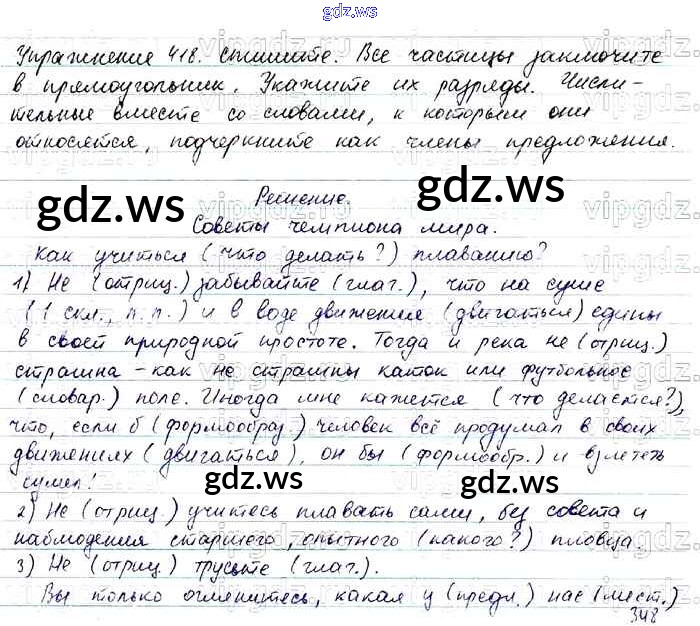 gdz.ws
Упражнение 418. Спишите. Все частицы заключите
в прямоугольник. Укажите их разряды. Числи-
тельные вместе со словами, к которым они
относятся, подчеркните как члены предложения.
Решение.
gdz.ws gdz.ws
Советы чемпиона мира.
Как учиться (что делать?) плаванию?
1) Не (отриц.) забывайте (глаг.), что на суше
(1 скл., п.п.) и в воде движения (двигаться) едины
в своей природной простоте. Тогда и река не (отриц.)
страшна - как не страшны каток или футбольное
(словар.) поле. Иногда мне кажется (что делается?),
что, если б (формообраз.) человек всё продумал в своих
движениях (двигаться), он бы (формообр.) и взлететь
сумел!
gdz.ws gdz.ws
2) Не (отриц.) учитесь плавать сами, без совета и
наблюдения старшего, опытного (какого?) пловца.
3) Не (отриц.) трусьте (глаг.).
Вы только оглянитесь, какая у (предл.) нас (мест.)
348